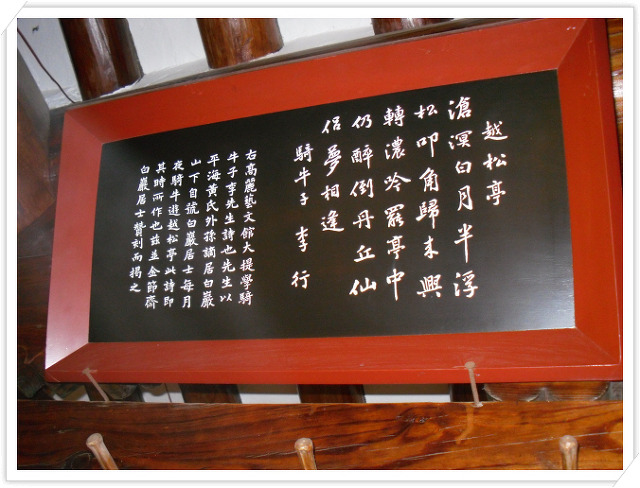 越松亭
滄溟白月半浮
松叩角歸來興
轉濃吟罷亭中
仍醉倒丹丘仙
侶夢相逢
騎牛子李行
右高麗藝文館大提學騎
牛子李先生詩也先生以
平海黃氏外孫謫居白巖
山下自號白巖居士每月
夜騎牛遊越松亭此詩即
其時所作也玆並金節齋
白巖居士贊刻而揭之